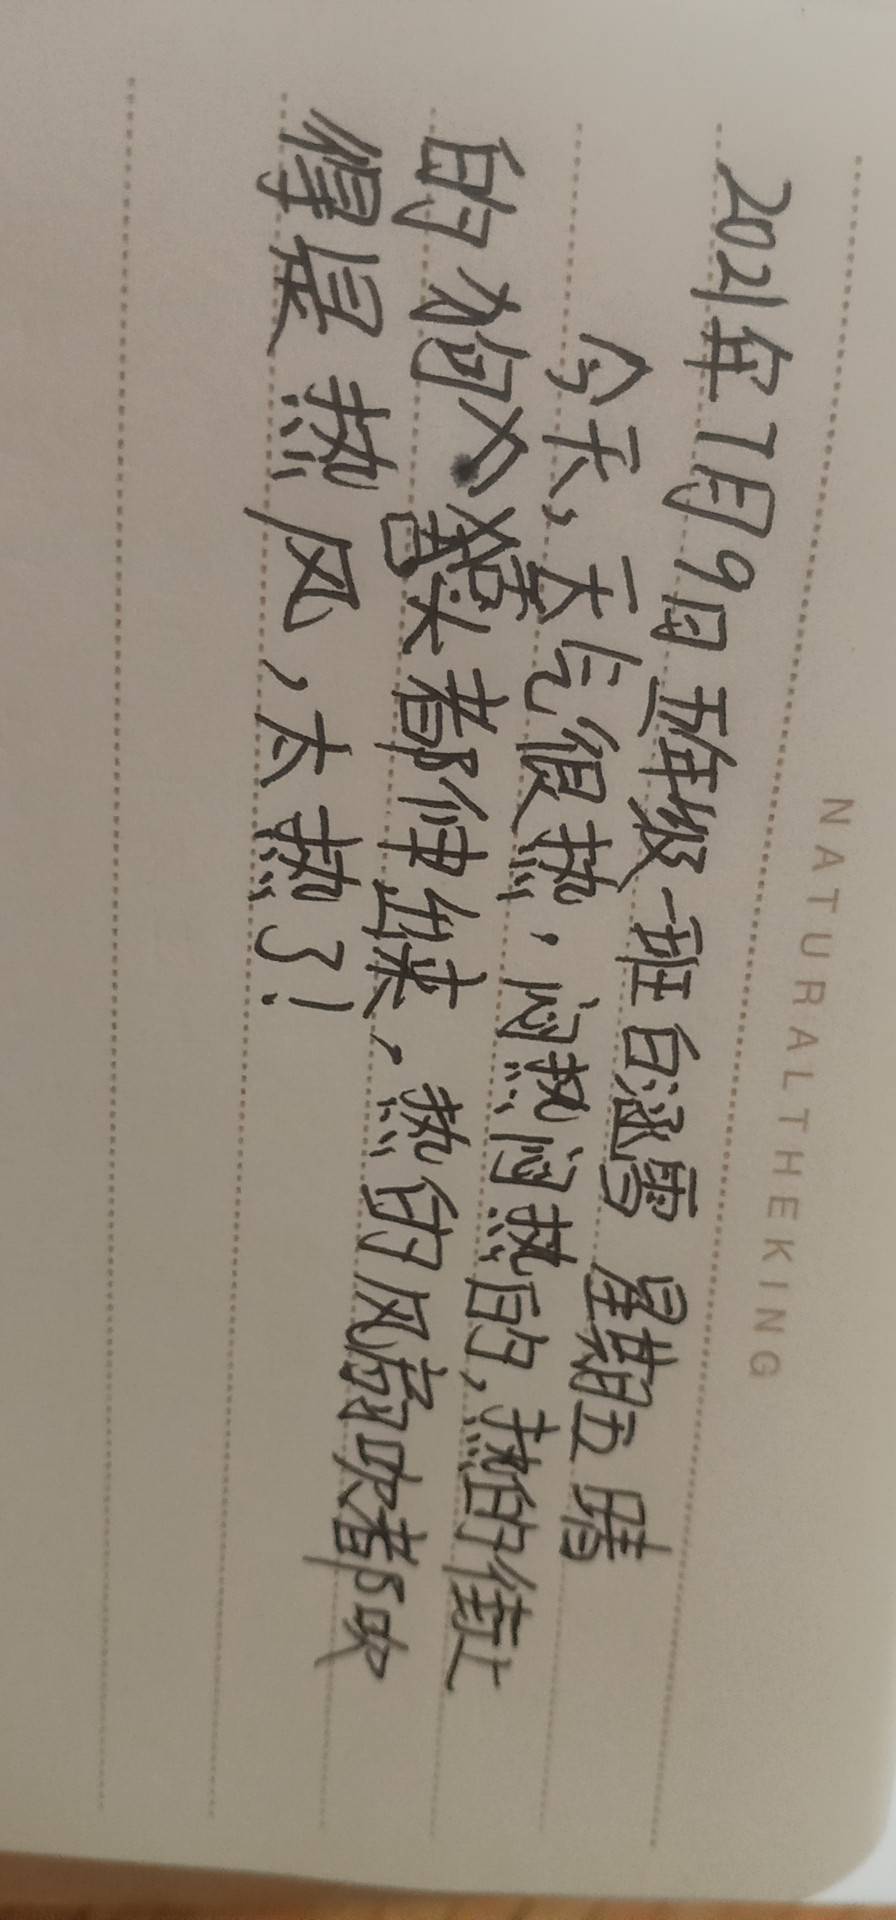 NATURALTHEKING
2021年7月9日 五年级一班 白涵雪 星期五 晴
今天,天气很热,闷热闷热的,热的街上
的狗舌头都伸出来,热的风扇吹都吹
得是热风,太热了!